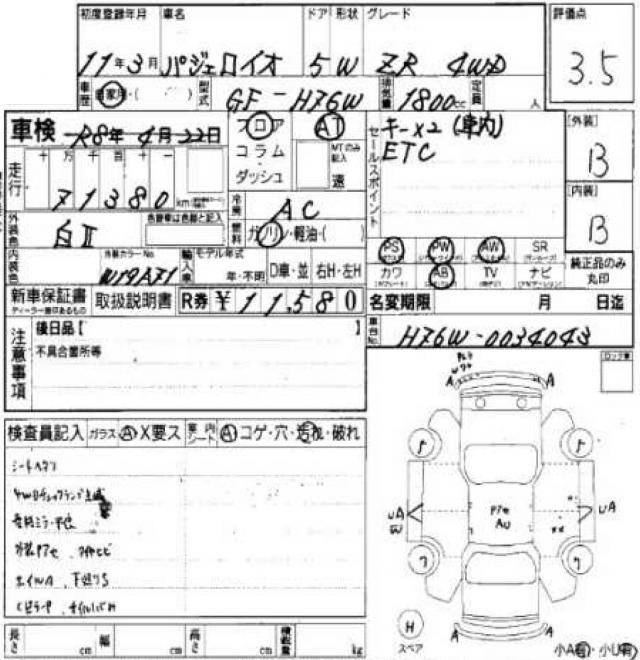 初度登録年月 車名 ドア 形状 グレード 評価点
11年3月 パジェロイオ 5 W ZR 4WD 3.5
車歴 自家用・( ) 型式 GF-H76W 排気量 1800cc 定員 人
車検 R8年4月22日 フロア AT
コラム MTのみ記入
ダッシュ 速
セールスポイント キー×2 (車内)
ETC
[外装] B
[内装] B
走行 十万千百十一
71380 km
冷房 AC
外装色 白Ⅱ 色替車は色替と記入
燃料 ガソリン・軽油・( )
内装色 外装カラーNo. W19AX1 輸入車 モデル年式 年・不明 D車・並 右H・左H
PS PW AW SR
カワ AB TV ナビ
純正品のみ丸印
新車保証書 取扱説明書 R券 ¥11,580
名変期限 月 日迄
車台No. H76W-0034043
注意事項 後日品【 】
不具合箇所等
検査員記入 ガラス A X要ス 車内シート A コゲ・穴・汚れ・破れ
シートヘタリ
A A
UA UA
ワ ワ
H
スペア
A A
小A有・小U有
長さ cm 幅 cm 高さ cm 積載量 kg